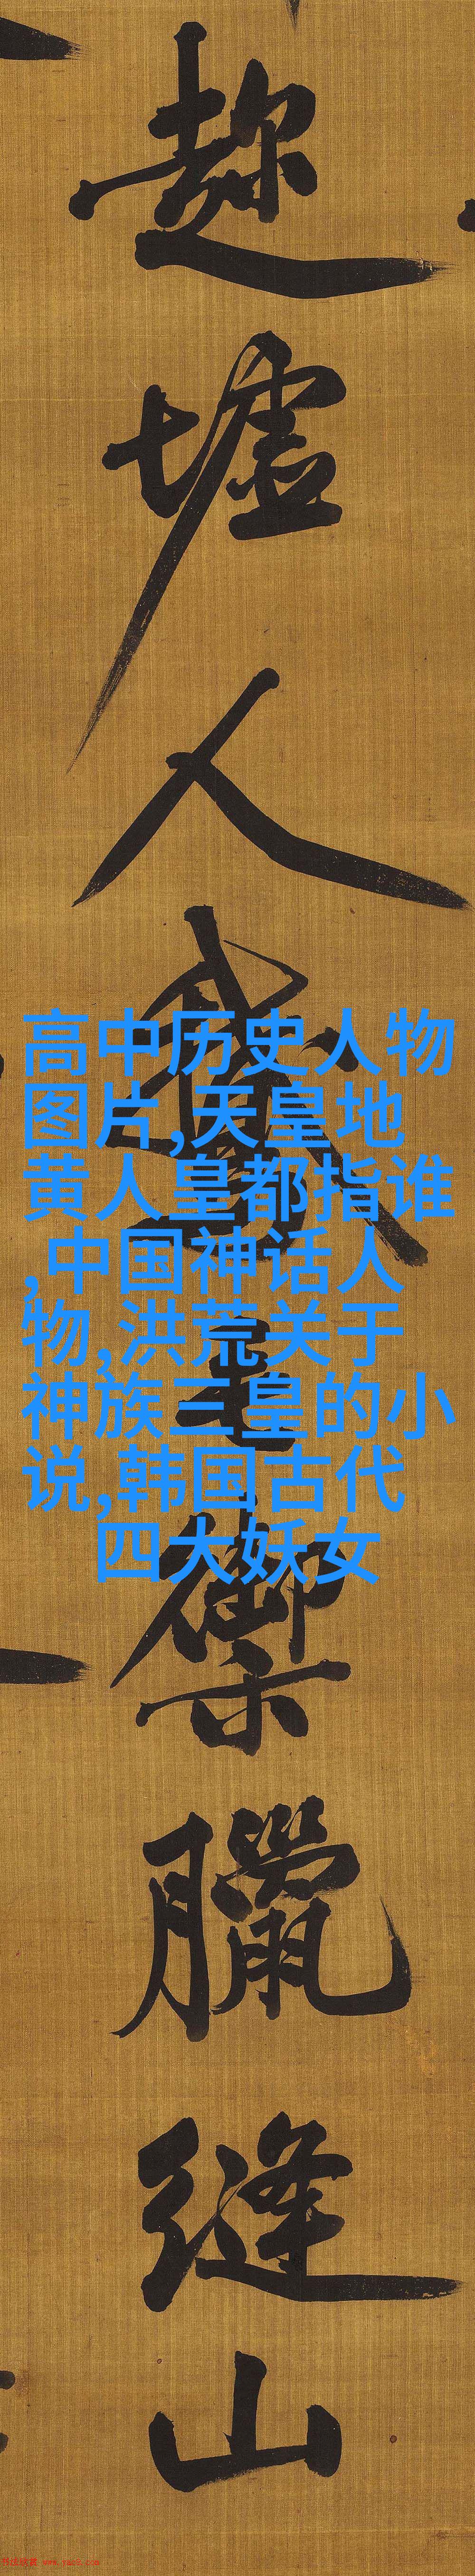 趁墟人賣毛御臘縫山
高中历史人物
图片,天皇地
黄人皇都指谁
,中国神话人
物,洪荒关于
神族三皇的小
说,韩国古代
四大妖女